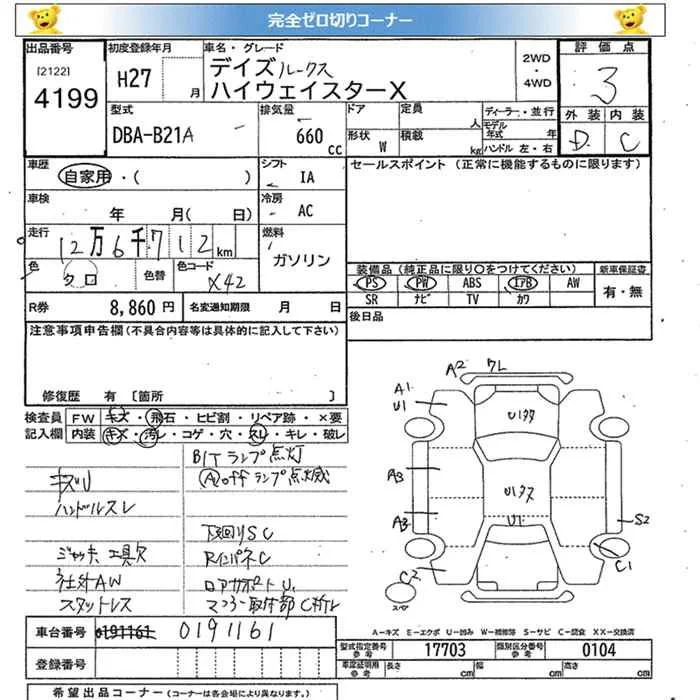 完全ゼロ切りコーナー
出品番号 初度登録年月 車名・グレード 評価点
[2122] 4199 H27 月 デイズルークス 2WD ・ 4WD 3
ハイウェイスターX
型式 排気量 ドア 定員 人 ディーラー・並行 外装 内装
DBA-B21A 660 cc 形状 W 積載 kg モデル年式 年 ハンドル 左・右 D C
車歴 シフト セールスポイント (正常に機能するものに限ります)
自家用・( ) IA
車検 冷房
年 月( 日) AC
走行 燃料
12万6千712km ガソリン
色 クロ 色替 色コード X42
装備品 (純正品に限り〇をつけてください) 新車保証書
PS PW ABS IアB AW 有・無
SR ナビ TV カワ
R券 8,860円 名変通知期限 月 日
後日品
注意事項申告欄(不具合内容等は具体的に記入して下さい)
修復歴 有 [箇所 ]
検査員 FW キズ・飛石・ヒビ割・リペア跡・×要
記入欄 内装 キズ・汚レ・コゲ・穴・スレ・キレ・破レ
BITランプ点灯
キズU Aoffランプ点滅
ハンドルスレ
下廻りSC
ジャッキ 工具欠 RインパネC
社外AW ロアサポートU
スタットレス マフラー取付部C折レ
A2 ワレ
A1
U1
U1タタ
A3
U1タタ
A3 U1 S2
C2 C1
スペア
A-キズ E-エクボ U-凹み W-補修跡 S-サビ C-腐食 XX-交換済
車台番号 0191161 0191161
型式指定番号 参考 17703 類別区分番号 参考 0104
登録番号 車庫証明用 参考 長さ cm 幅 cm 高さ cm
希望出品コーナー (コーナーは各会場により異なります。)